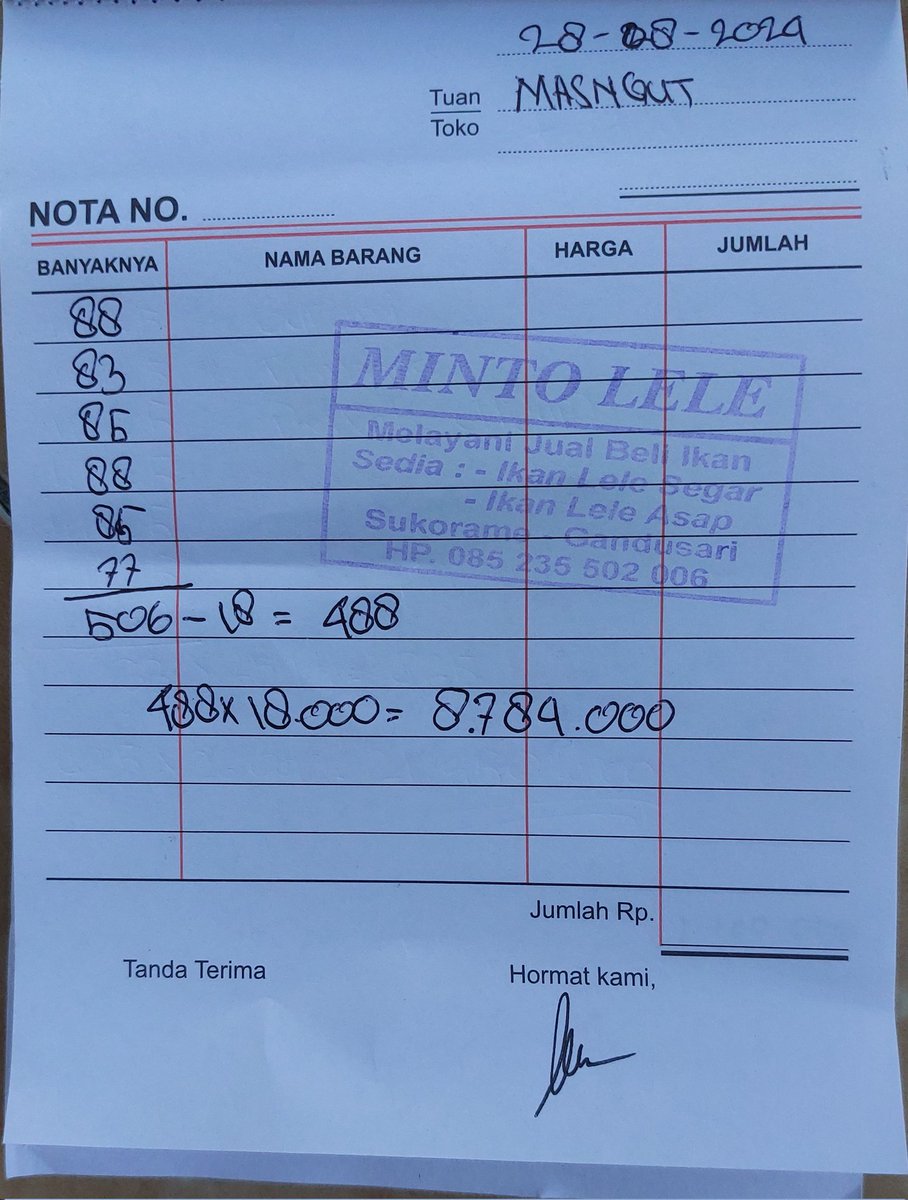 28-08-2024
Tuan MASNGUT
Toko
NOTA NO.
BANYAKNYA NAMA BARANG HARGA JUMLAH
88
83
85
88
85
77
506 - 18 = 488
488 x 18.000 = 8.784.000
MINTO LELE
Melayani Jual Beli Ikan
Sedia : - Ikan Lele Segar
- Ikan Lele Asap
Sukorame - Gandusari
HP. 085 235 502 006
Jumlah Rp.
Tanda Terima Hormat kami,